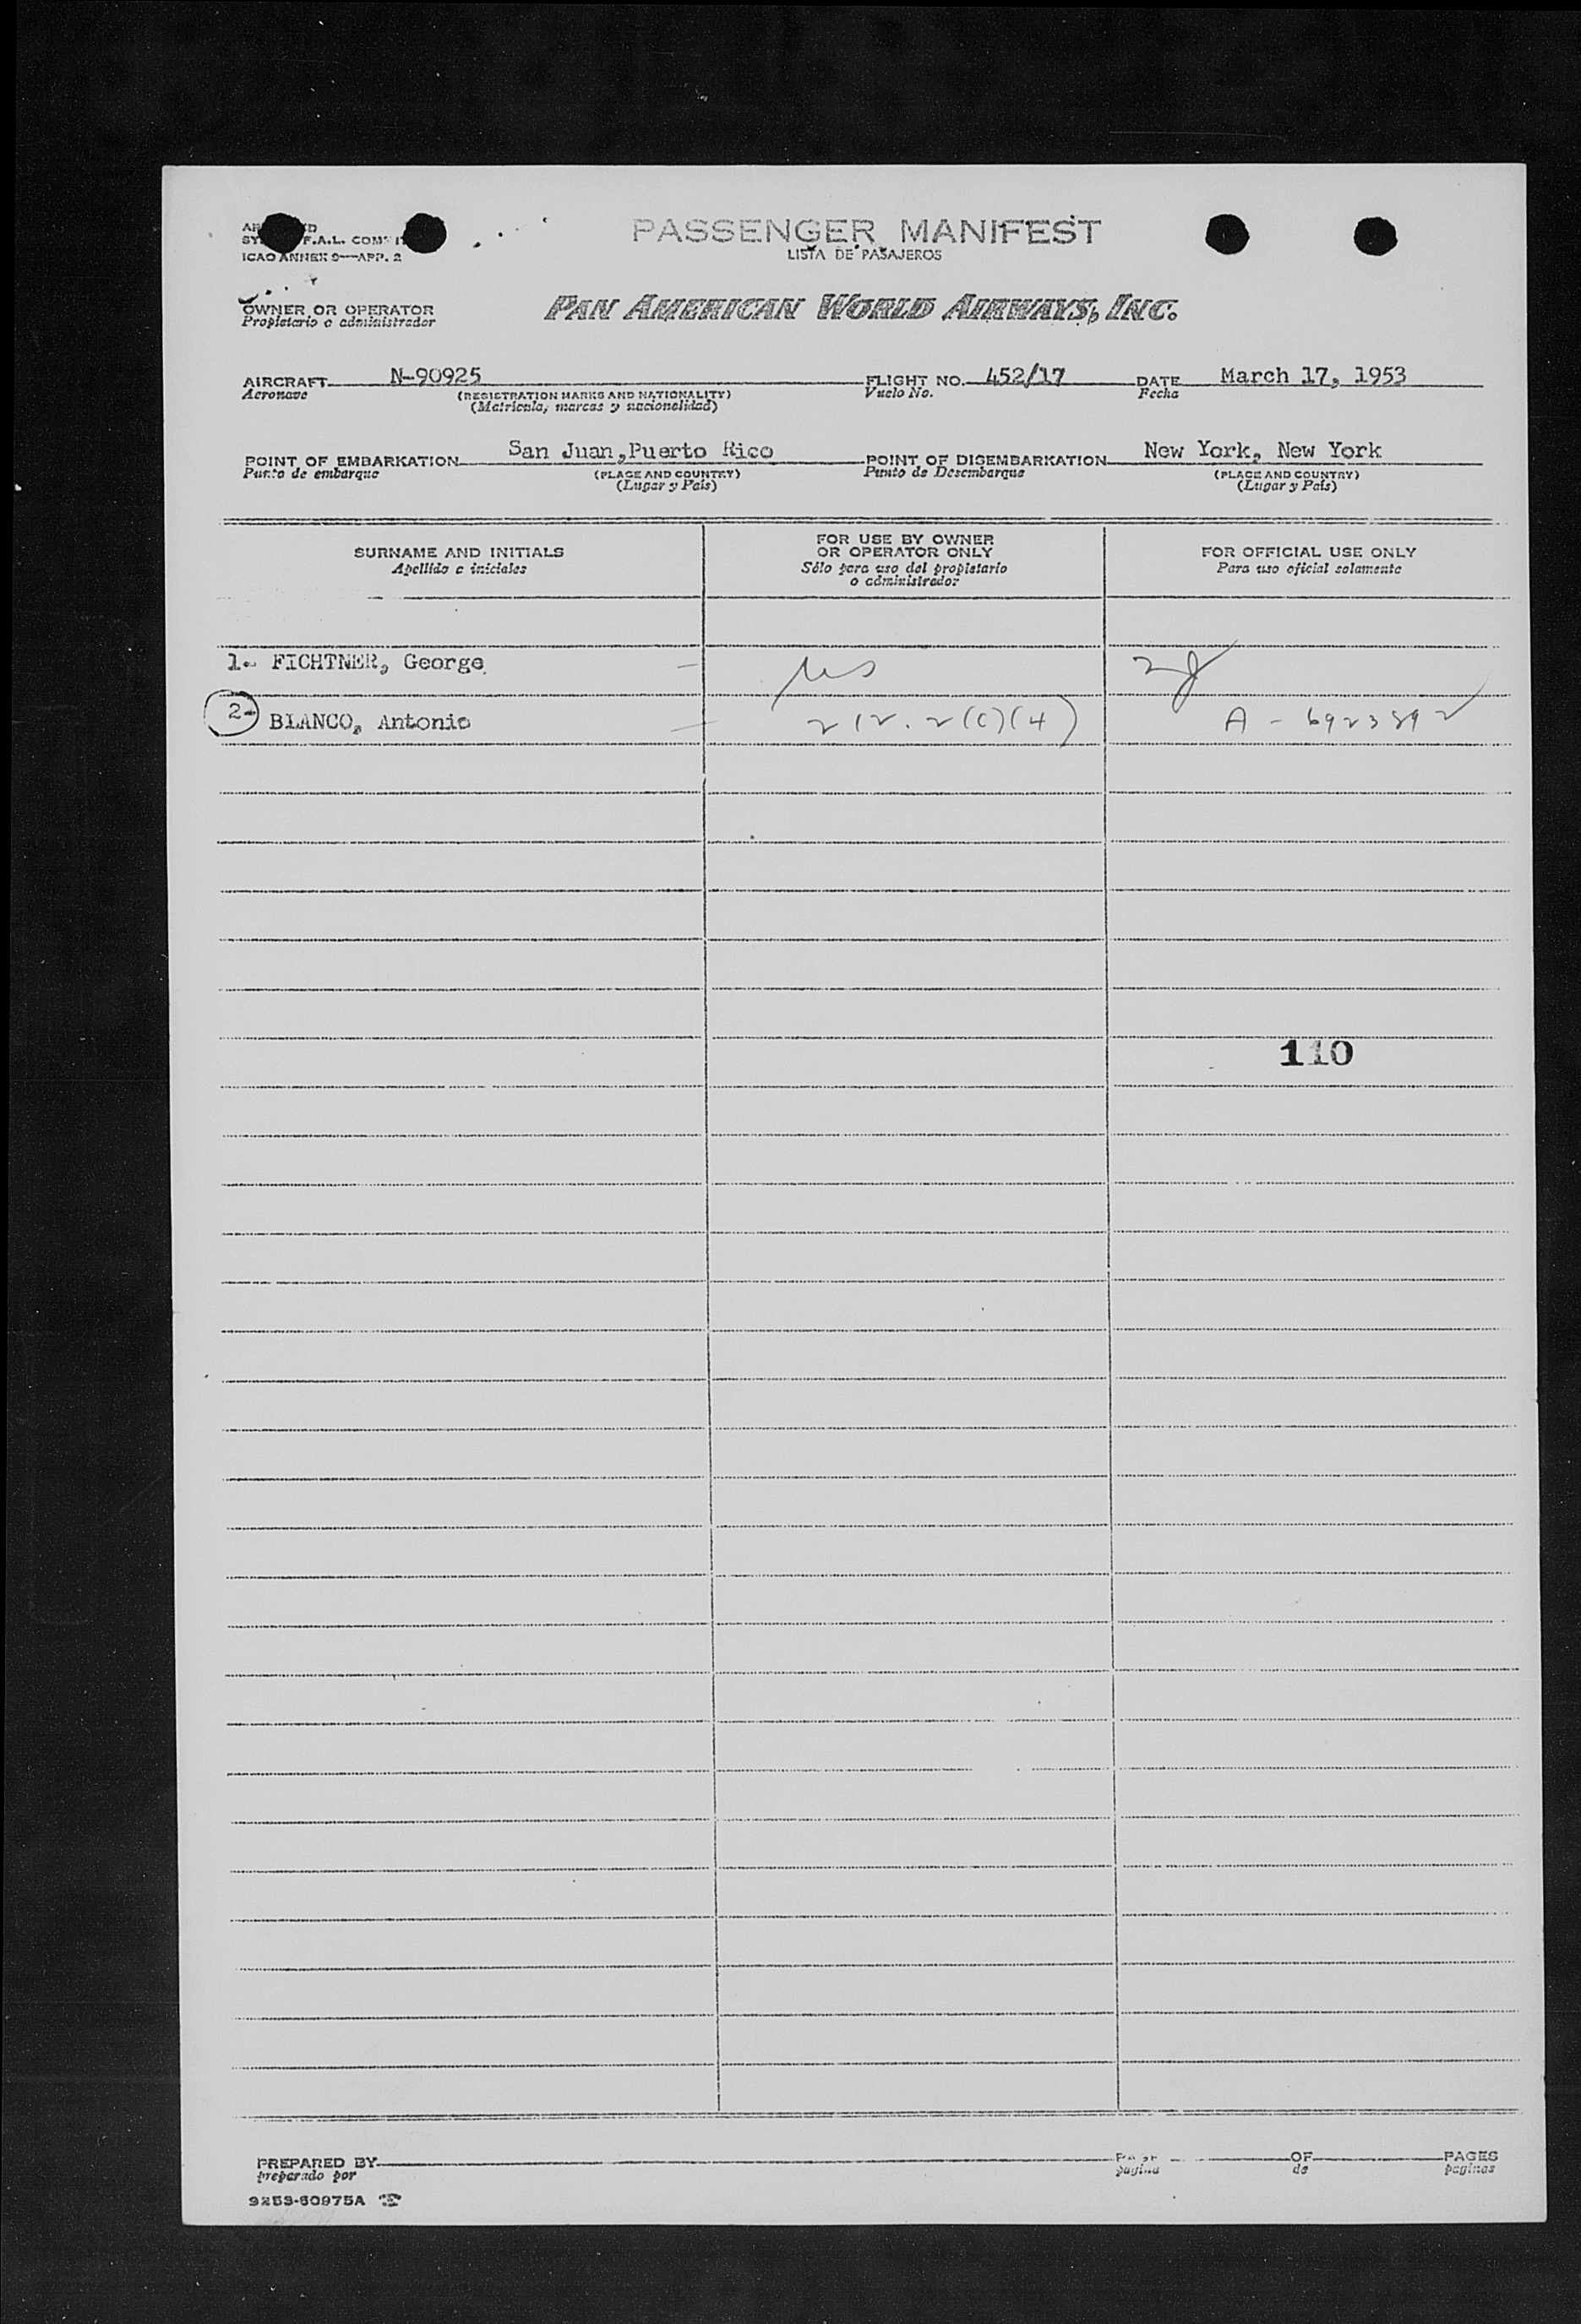 PASSENGER MANIFEST
LISTA DE PASAJEROS
F.A.L.
ICAO ANNEX 9—APP. 2
OWNER OR OPERATOR
Propietario o administrador
PAN AMERICAN WORLD AIRWAYS, INC.
AIRCRAFT N-90925 FLIGHT NO. 452/17 DATE March 17, 1953
Aeronave (REGISTRATION MARKS AND NATIONALITY) Vuelo No. Fecha
(Matricula, marcas y nacionalidad)
POINT OF EMBARKATION San Juan,Puerto Rico POINT OF DISEMBARKATION New York, New York
Punto de embarque (PLACE AND COUNTRY) Punto de Desembarque (PLACE AND COUNTRY)
(Lugar y País) (Lugar y País)
SURNAME AND INITIALS
Apellido e iniciales
FOR USE BY OWNER
OR OPERATOR ONLY
Sólo para uso del propietario
o administrador
FOR OFFICIAL USE ONLY
Para uso oficial solamente
1. FICHTNER, George us
2- BLANCO, Antonio 212.2(c)(4) A - 6923892
110
PREPARED BY PAGE OF PAGES
preparado por página de páginas
9253-60975A